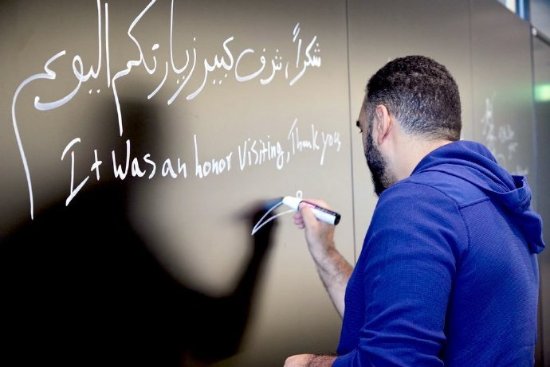 شكراً، شرف كبير زيارتكم اليوم
It Was an honor Visiting, Thank you